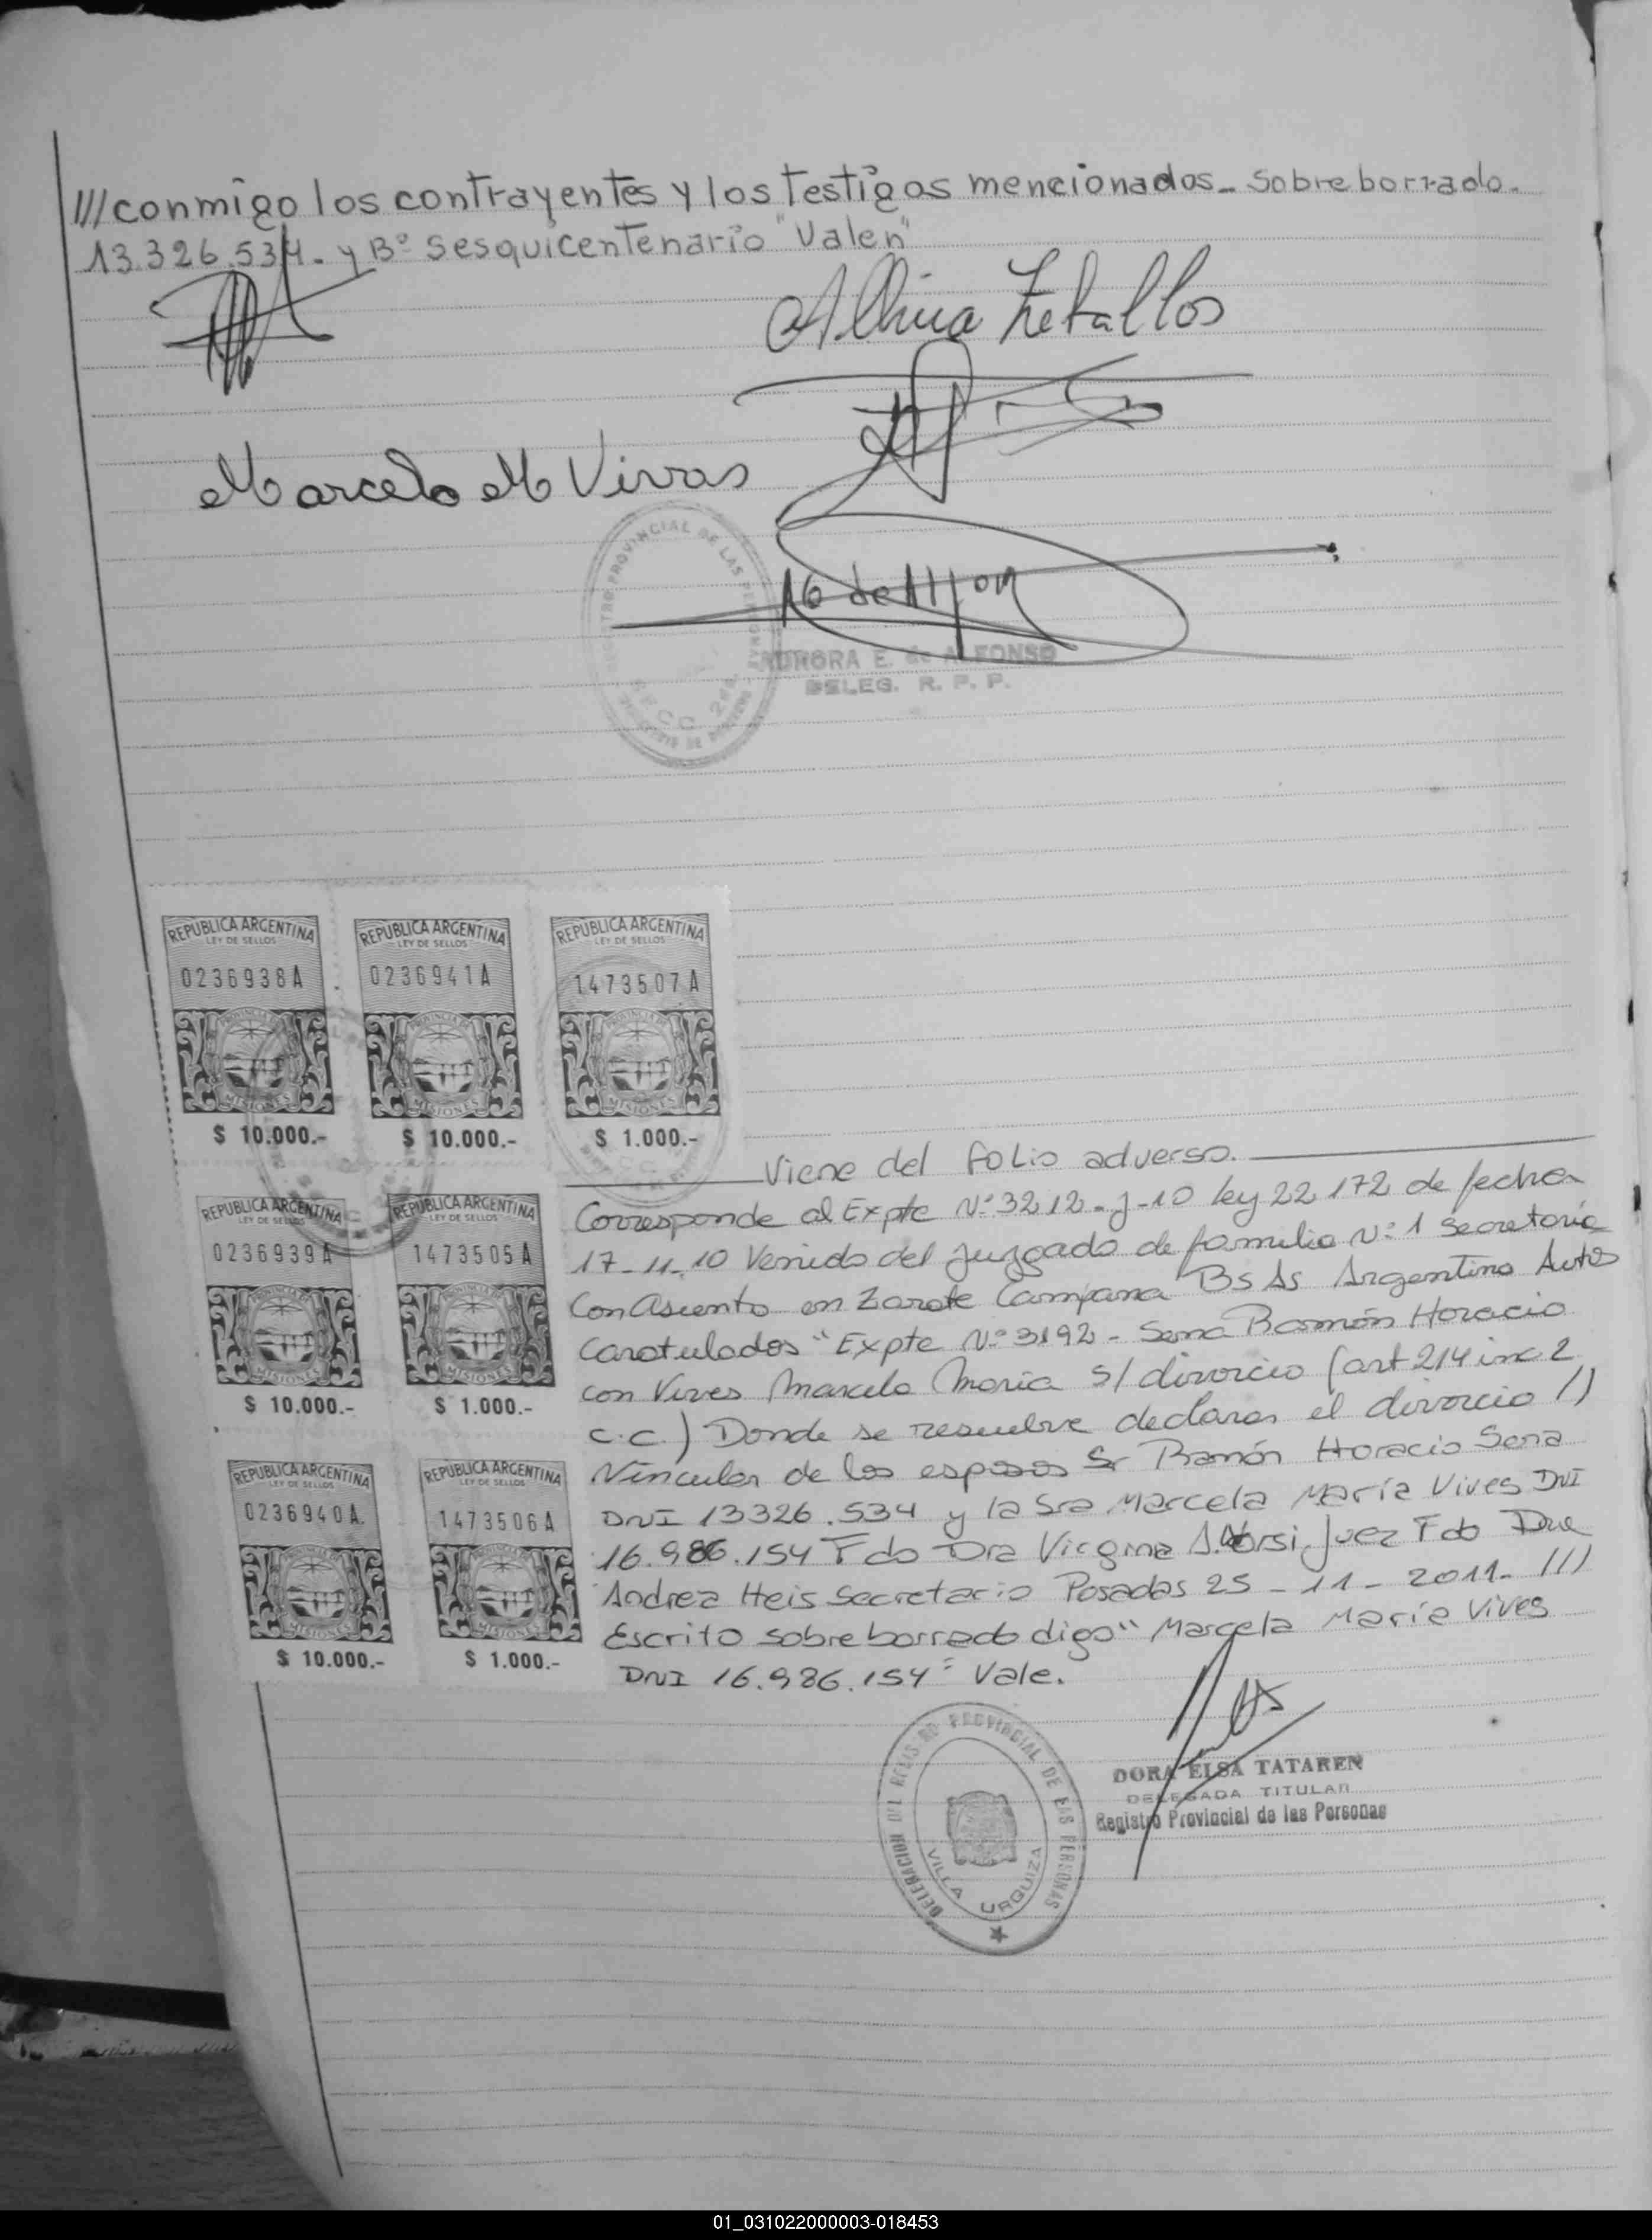 ///conmigo los contrayentes y los testigos mencionados_ Sobre borrado.
13.326.534. y Bº Sesquicentenario "Valen"
Albina Zeballos
Marcelo M Vivas
REGISTRO PROVINCIAL DE LAS PERSONAS
SECC. 2da.
16 de
AURORA E. de ALFONSO
DELEG. R. P. P.
REPUBLICA ARGENTINA
LEY DE SELLOS
0236938A
PROVINCIA DE
MISIONES
$ 10.000.-
REPUBLICA ARGENTINA
LEY DE SELLOS
0236941A
PROVINCIA DE
MISIONES
$ 10.000.-
REPUBLICA ARGENTINA
LEY DE SELLOS
1473507A
PROVINCIA DE
MISIONES
$ 1.000.-
REPUBLICA ARGENTINA
LEY DE SELLOS
0236939A
PROVINCIA DE
MISIONES
$ 10.000.-
REPUBLICA ARGENTINA
LEY DE SELLOS
1473505A
PROVINCIA DE
MISIONES
$ 1.000.-
REPUBLICA ARGENTINA
LEY DE SELLOS
0236940A.
PROVINCIA DE
MISIONES
$ 10.000.-
REPUBLICA ARGENTINA
LEY DE SELLOS
1473506A
PROVINCIA DE
MISIONES
$ 1.000.-
Viene del folio adverso.
Corresponde al Expte Nº 3212-J-10 ley 22 172 de fecha
17-11-10 Venido del Juzgado de familia Nº 1 Secretoria
Con Asiento en Zarate Campana Bs As Argentina Autos
Caratulados "Expte Nº 3192 - Sena Ramón Horacio
con Vives Marcela Maria S/ divorcio (art 214 inc 2
c.c.) Donde se resuelve declarar el divorcio //
Vincular de los esposos Sr Ramón Horacio Sena
DNI 13326.534 y la Sra Marcela María Vives DNI
16.986.154 Fdo Dra Virginia Juez Fdo Dra
Andrea Heis Secretario Posadas 25-11-2011- ///
Escrito sobre borrado digo " Marcela María Vives
DNI 16.986.154" Vale.
DELEGACION DEL REGISTRO PROVINCIAL DE LAS PERSONAS
VILLA URQUIZA
DORA ELSA TATAREN
DELEGADA TITULAR
Registro Provincial de las Personas
01_031022000003-018453